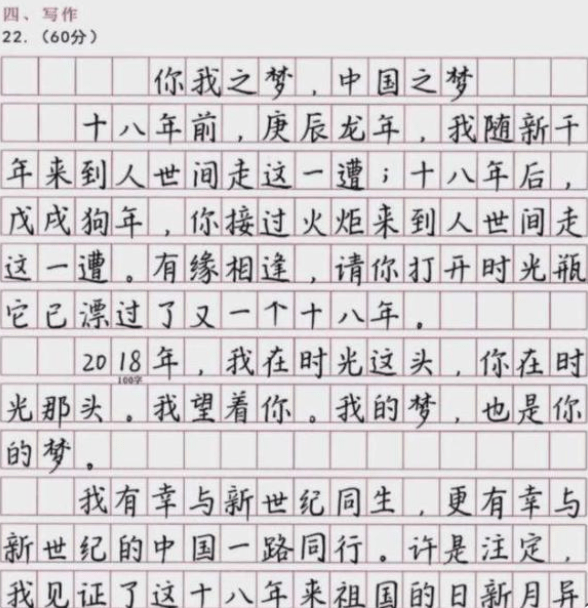 四、写作
22.（60分）
你我之梦，中国之梦
十八年前，庚辰龙年，我随新千
年来到人世间走这一遭；十八年后，
戊戌狗年，你接过火炬来到人世间走
这一遭。有缘相逢，请你打开时光瓶
它已漂过了又一个十八年。
2018年，我在时光这头，你在时
100字
光那头。我望着你。我的梦，也是你
的梦。
我有幸与新世纪同生，更有幸与
新世纪的中国一路同行。许是注定，
我见证了这十八年来祖国的日新月异